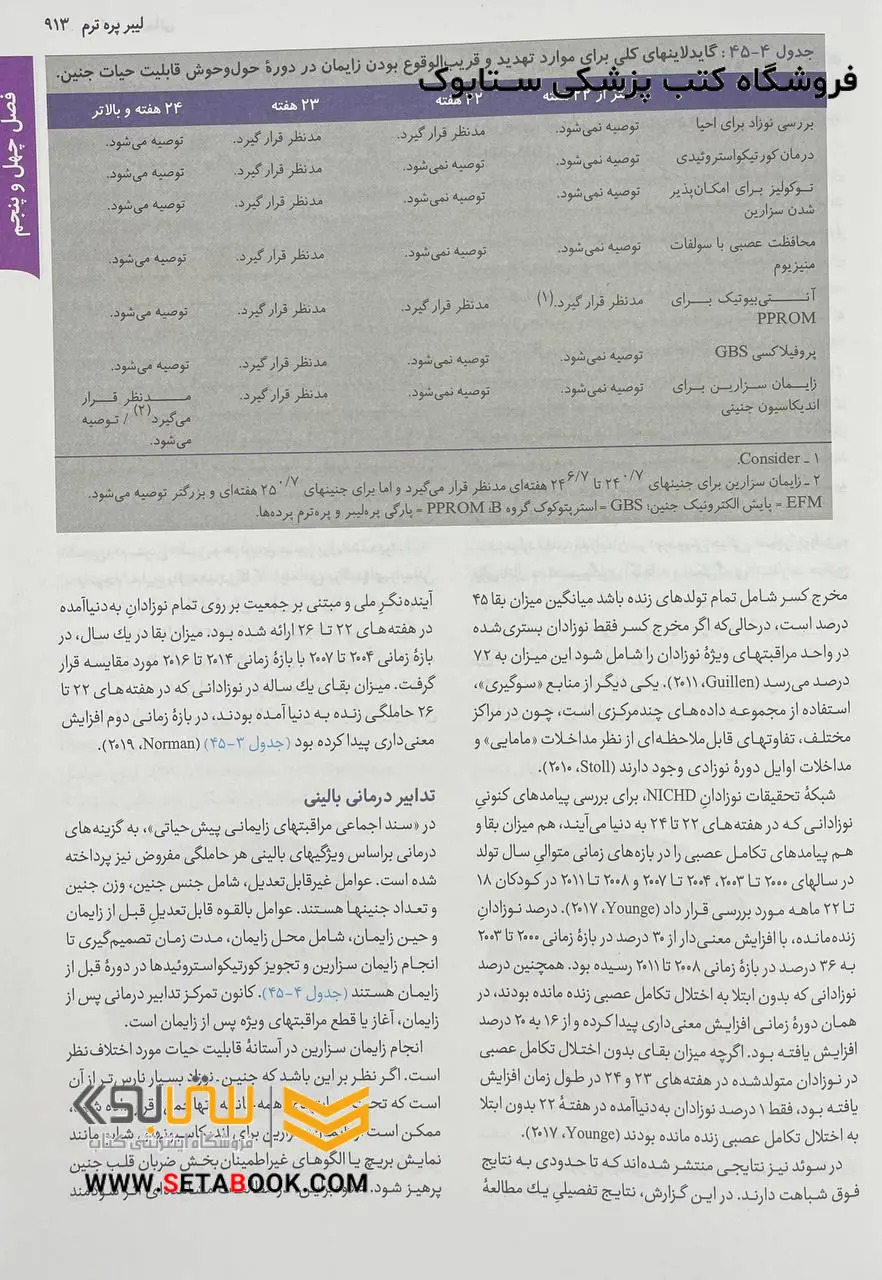 لیبر پره ترم ۹۱۳
فصل چهل و پنجم
جدول ۴-۴۵: گایدلاینهای کلی برای موارد تهدید و قریب‌الوقوع بودن زایمان در دورهٔ حول‌وحوش قابلیت حیات جنین.
فروشگاه کتب پزشکی ستابوک
۲۲ هفته ۲۳ هفته ۲۴ هفته و بالاتر
بررسی نوزاد برای احیا توصیه نمی‌شود. مدنظر قرار گیرد. مدنظر قرار گیرد. توصیه می‌شود.
درمان کورتیکواستروئیدی توصیه نمی‌شود. توصیه نمی‌شود. مدنظر قرار گیرد. توصیه می‌شود.
توکولیز برای امکان‌پذیر توصیه نمی‌شود. توصیه نمی‌شود. مدنظر قرار گیرد. توصیه می‌شود.
شدن سزارین
محافظت عصبی با سولفات توصیه نمی‌شود. توصیه نمی‌شود. مدنظر قرار گیرد. توصیه می‌شود.
منیزیوم
آنتی‌بیوتیک برای مدنظر قرار گیرد.(۱) مدنظر قرار گیرد. مدنظر قرار گیرد. توصیه می‌شود.
PPROM
پروفیلاکسی GBS توصیه نمی‌شود. توصیه نمی‌شود. مدنظر قرار گیرد. توصیه می‌شود.
زایمان سزارین برای توصیه نمی‌شود. توصیه نمی‌شود. مدنظر قرار گیرد. مدنظر قرار
اندیکاسیون جنینی می‌گیرد(۲) / توصیه
می‌شود.
۱ ـ Consider.
۲ ـ زایمان سزارین برای جنینهای ۲۴ ۰/۷ تا ۲۴ ۶/۷ هفته‌ای مدنظر قرار می‌گیرد و اما برای جنینهای ۲۵ ۰/۷ هفته‌ای و بزرگتر توصیه می‌شود.
EFM = پایش الکترونیک جنین؛ GBS = استرپتوکوک گروه B؛ PPROM = پارگی پره‌لیبر و پره‌ترم پرده‌ها.
مخرج کسر شامل تمام تولدهای زنده باشد میانگین میزان بقا ۴۵
درصد است، درحالی‌که اگر مخرج کسر فقط نوزادان بستری‌شده
در واحد مراقبتهای ویژهٔ نوزادان را شامل شود این میزان به ۷۲
درصد می‌رسد (Guillen، ۲۰۱۱). یکی دیگر از منابع «سوگیری»،
استفاده از مجموعه داده‌های چندمرکزی است، چون در مراکز
مختلف، تفاوتهای قابل‌ملاحظه‌ای از نظر مداخلات «مامایی» و
مداخلات اوایل دورهٔ نوزادی وجود دارند (Stoll، ۲۰۱۰).
شبکهٔ تحقیقات نوزادانِ NICHD، برای بررسی پیامدهای کنونیِ
نوزادانی که در هفته‌های ۲۲ تا ۲۴ به دنیا می‌آیند، هم میزان بقا و
هم پیامدهای تکامل عصبی را در بازه‌های زمانی متوالیِ سال تولد
در سالهای ۲۰۰۰ تا ۲۰۰۳، ۲۰۰۴ تا ۲۰۰۷ و ۲۰۰۸ تا ۲۰۱۱ در کودکان ۱۸
تا ۲۲ ماهه مورد بررسی قرار داد (Younge، ۲۰۱۷). درصد نوزادانِ
زنده‌مانده، با افزایش معنی‌دار از ۳۰ درصد در بازهٔ زمانی ۲۰۰۰ تا ۲۰۰۳
به ۳۶ درصد در بازهٔ زمانی ۲۰۰۸ تا ۲۰۱۱ رسیده بود. همچنین درصد
نوزادانی که بدون ابتلا به اختلال تکامل عصبی زنده مانده بودند، در
همان دورهٔ زمانی افزایش معنی‌داری پیدا کرده و از ۱۶ به ۲۰ درصد
افزایش یافته بود. اگرچه میزان بقای بدون اختلال تکامل عصبی
در نوزادان متولدشده در هفته‌های ۲۳ و ۲۴ در طول زمان افزایش
یافته بود، فقط ۱ درصد نوزادان به‌دنیاآمده در هفتهٔ ۲۲ بدون ابتلا
به اختلال تکامل عصبی زنده مانده بودند (Younge، ۲۰۱۷).
در سوئد نیز نتایجی منتشر شده‌اند که تا حدودی به نتایج
فوق شباهت دارند. در این گزارش، نتایج تفصیلیِ یك مطالعهٔ
آینده‌نگرِ ملی و مبتنی بر جمعیت بر روی تمام نوزادانِ به‌دنیاآمده
در هفته‌های ۲۲ تا ۲۶ ارائه شده بود. میزان بقا در یك سال، در
بازهٔ زمانی ۲۰۰۴ تا ۲۰۰۷ با بازهٔ زمانی ۲۰۱۴ تا ۲۰۱۶ مورد مقایسه قرار
گرفت. میزان بقای یك ساله در نوزادانی که در هفته‌های ۲۲ تا
۲۶ حاملگی زنده به دنیا آمده بودند، در بازهٔ زمانی دوم افزایش
معنی‌داری پیدا کرده بود (جدول ۳-۴۵) (Norman، ۲۰۱۹).
تدابیر درمانی بالینی
در «سند اجماعی مراقبتهای زایمانی پیش‌حیاتی»، به گزینه‌های
درمانی براساس ویژگیهای بالینی هر حاملگی مفروض نیز پرداخته
شده است. عوامل غیرقابل‌تعدیل، شامل جنس جنین، وزن جنین
و تعداد جنینها هستند. عوامل بالقوه قابل‌تعدیلِ قبل از زایمان
و حین زایمان، شامل محل زایمان، مدت زمان تصمیم‌گیری تا
انجام زایمان سزارین و تجویز کورتیکواستروئیدها در دورهٔ قبل از
زایمان هستند (جدول ۴-۴۵). کانون تمرکز تدابیر درمانی پس از
زایمان، آغاز یا قطع مراقبتهای ویژه پس از زایمان است.
انجام زایمان سزارین در آستانهٔ قابلیت حیات مورد اختلاف‌نظر
است. اگر نظر بر این باشد که جنین ـ نوزاد بسیار نارس‌تر از آن
است که تحت
ممکن است مانند
نمایش بریچ یا الگوهای غیراطمینان‌بخش ضربان قلب جنین
پرهیز شود.
ستابوک
فروشگاه اینترنتی کتاب
WWW.SETABOOK.COM